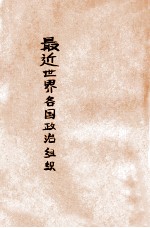 最近世界各国政治组织